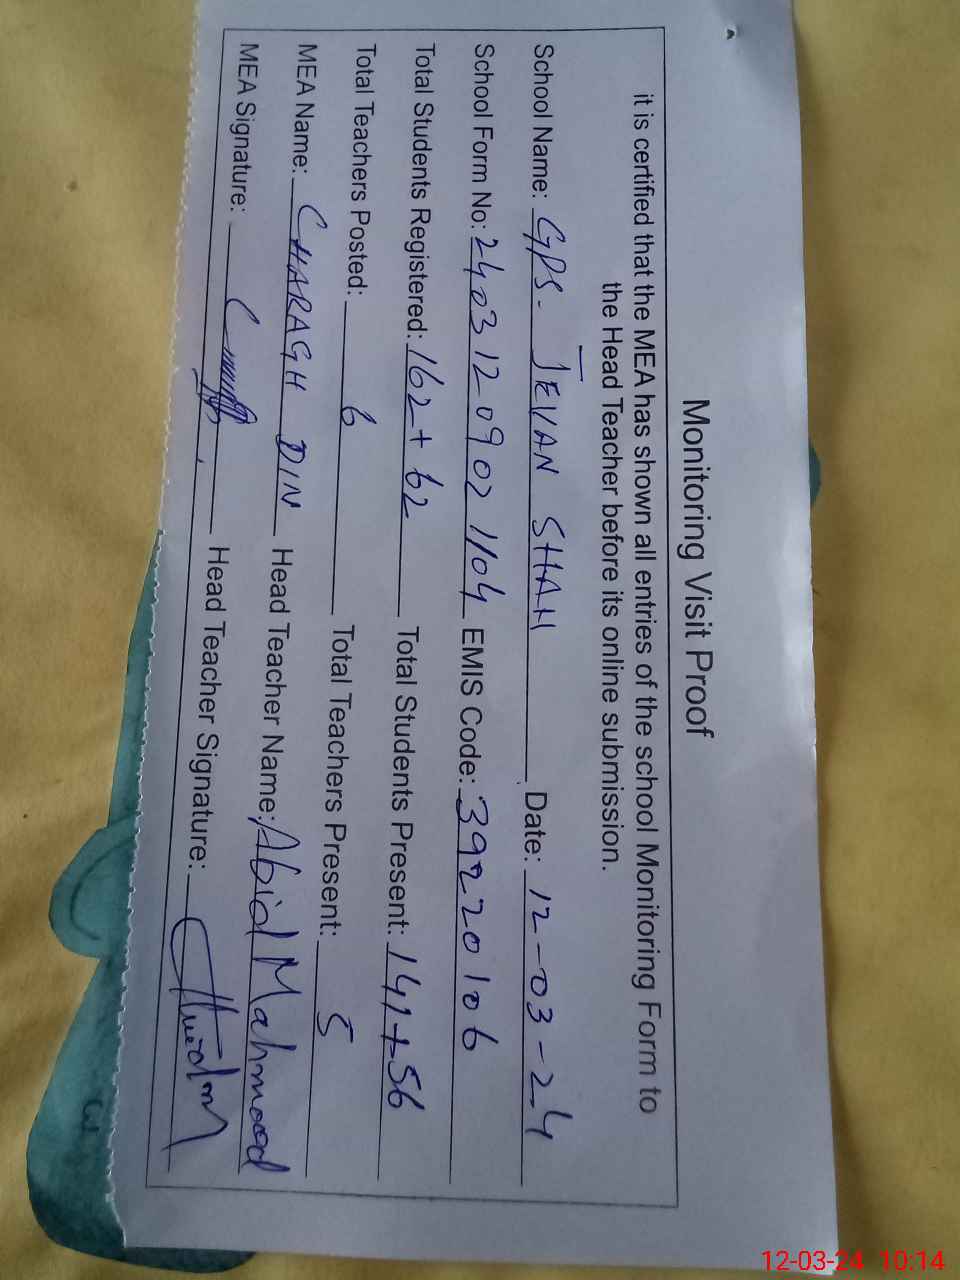 Monitoring Visit Proof
it is certified that the MEA has shown all entries of the school Monitoring Form to
the Head Teacher before its online submission.
School Name: GPS - JEVAN SHAH Date: 12-03-24
School Form No: 2403120902 1104 EMIS Code: 39220106
Total Students Registered: 162 + 62 Total Students Present: 141 + 56
Total Teachers Posted: 6 Total Teachers Present: 5
MEA Name: CHARAGH DIN Head Teacher Name: Abid Mahmood
MEA Signature: Head Teacher Signature:
12-03-24 10:14